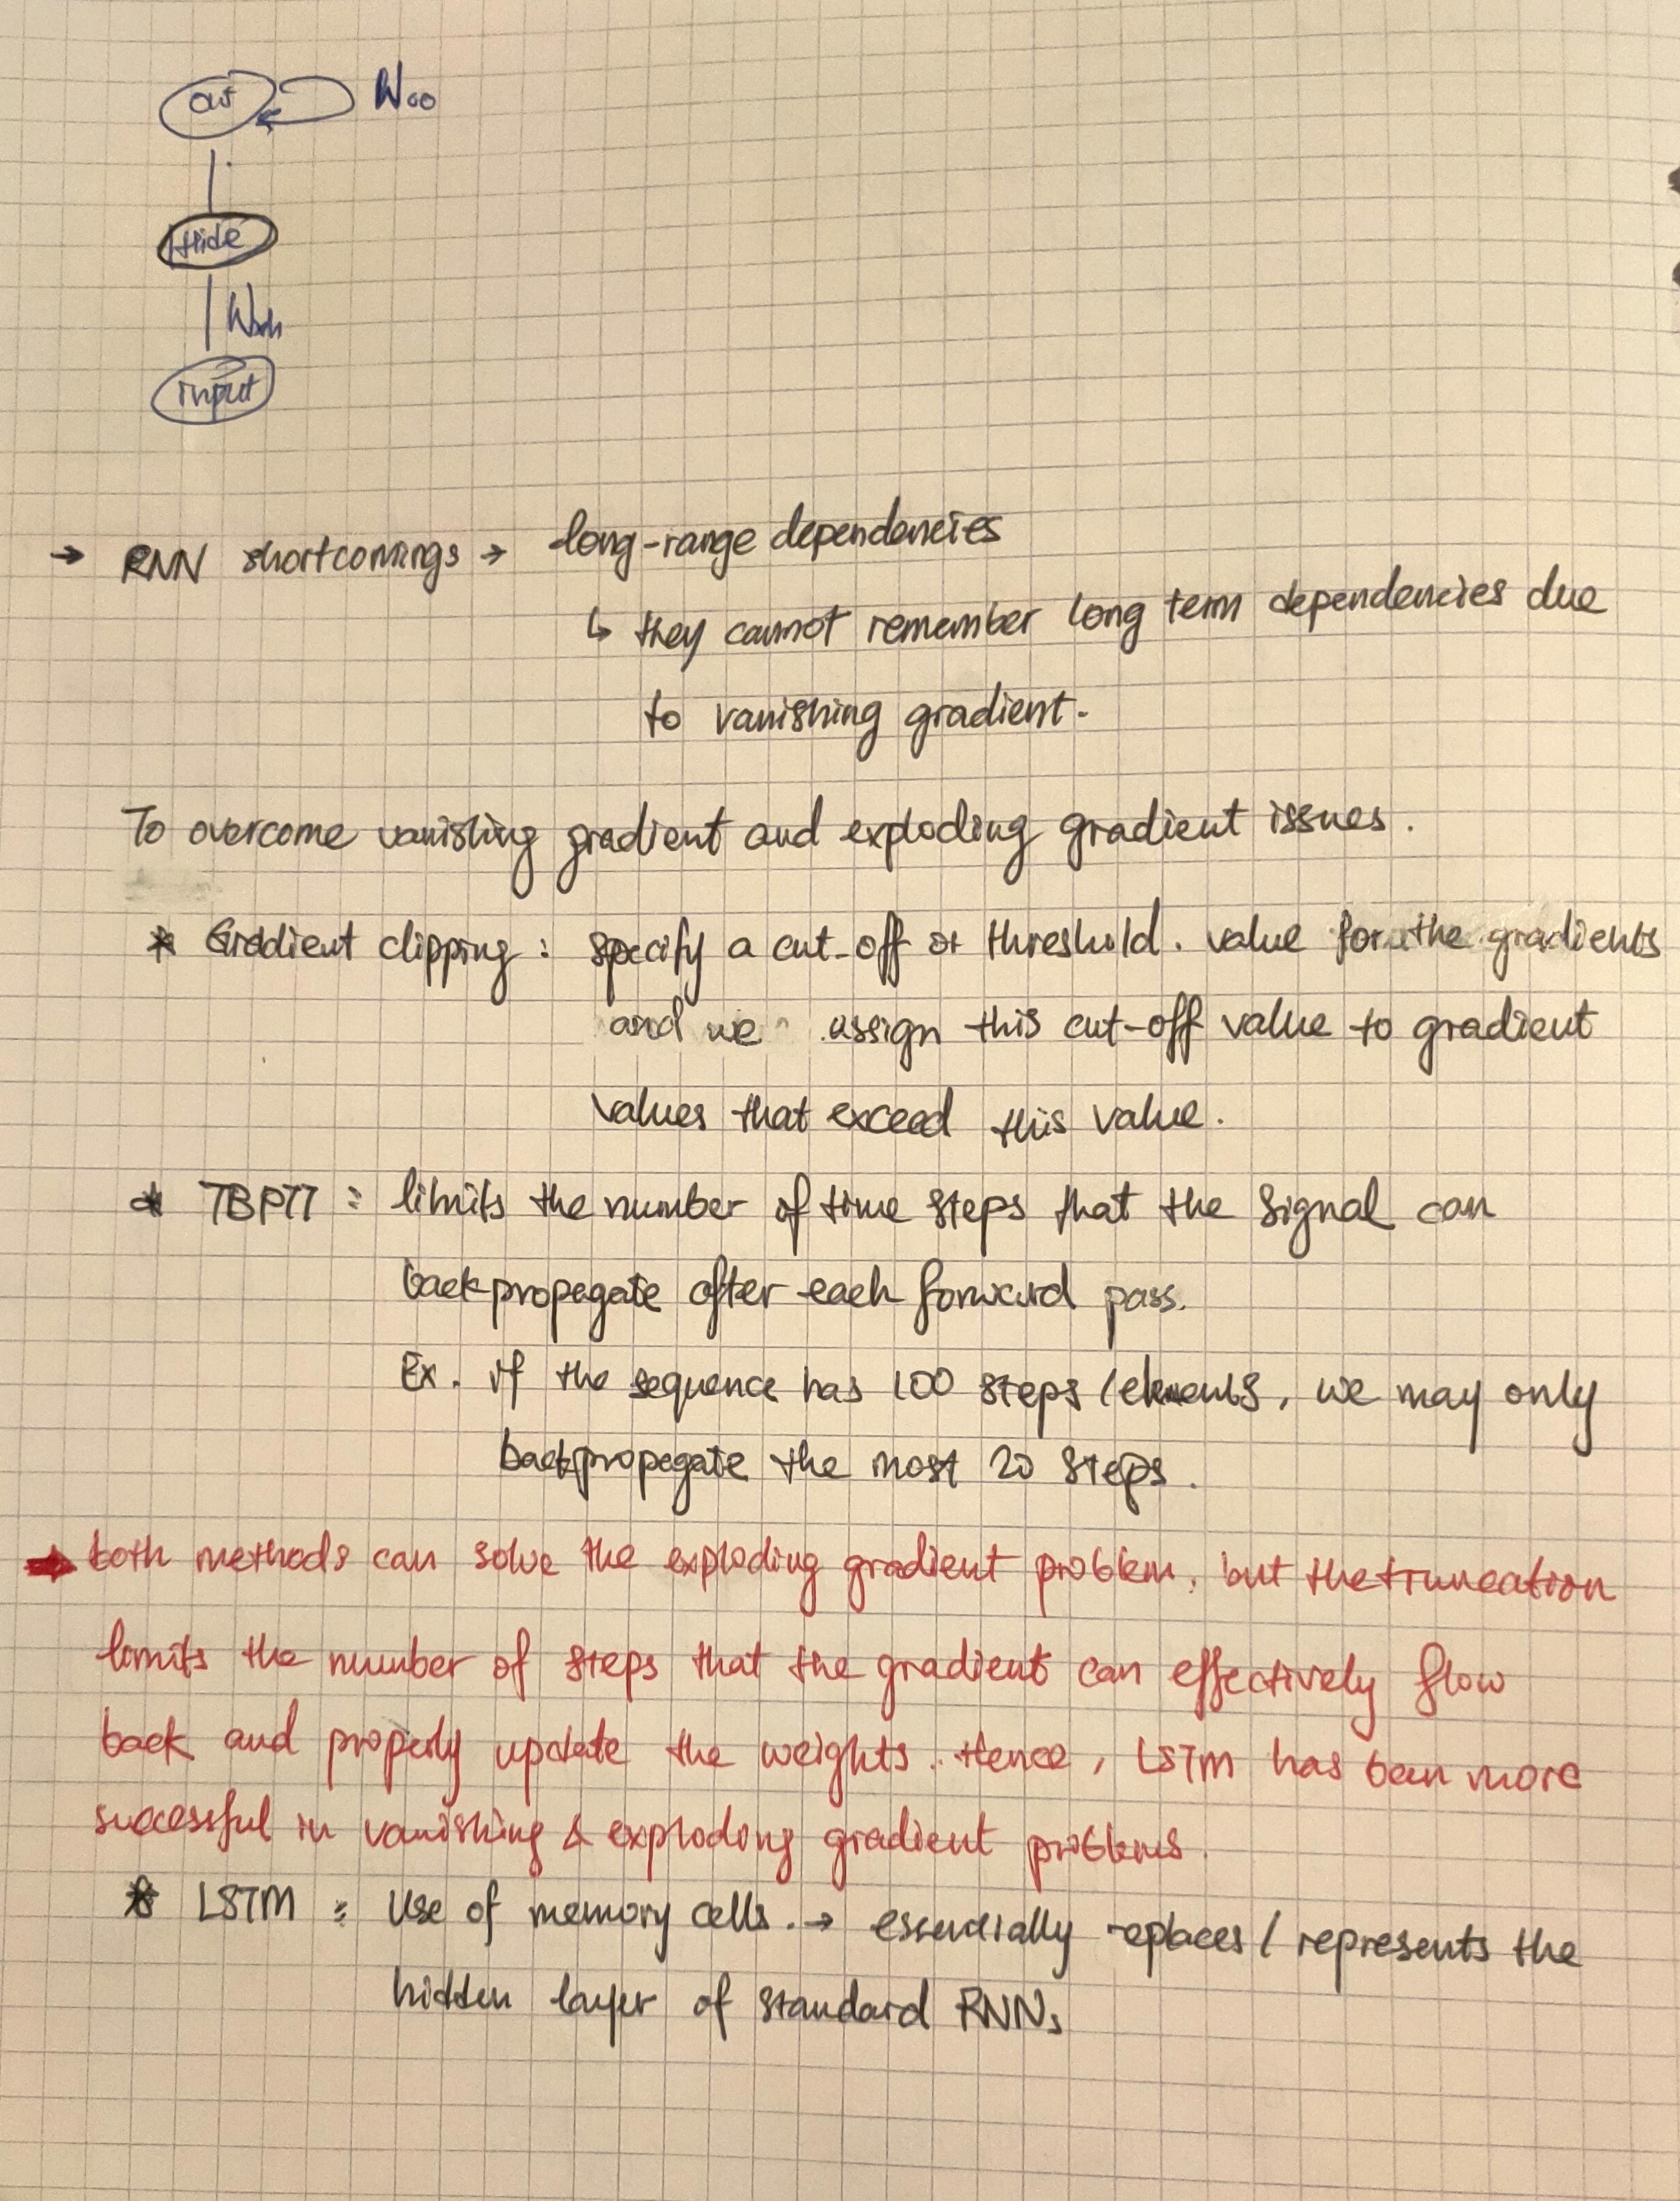 out Woo
Hide
Wxh
input
→ RNN shortcomings → long-range dependencies
↳ they cannot remember long term dependencies due
to vanishing gradient.
To overcome vanishing gradient and exploding gradient issues.
* Gradient clipping : specify a cut-off or threshold. value for the gradients
and we assign this cut-off value to gradient
values that exceed this value.
* TBPTT : limits the number of time steps that the signal can
backpropagate after each forward pass.
Ex. if the sequence has 100 steps / elements, we may only
backpropagate the most 20 steps.
→ both methods can solve the exploding gradient problem, but the truncation
limits the number of steps that the gradient can effectively flow
back and properly update the weights. Hence, LSTM has been more
successful in vanishing & exploding gradient problems.
* LSTM : Use of memory cells. → essentially replaces / represents the
hidden layer of standard RNNs